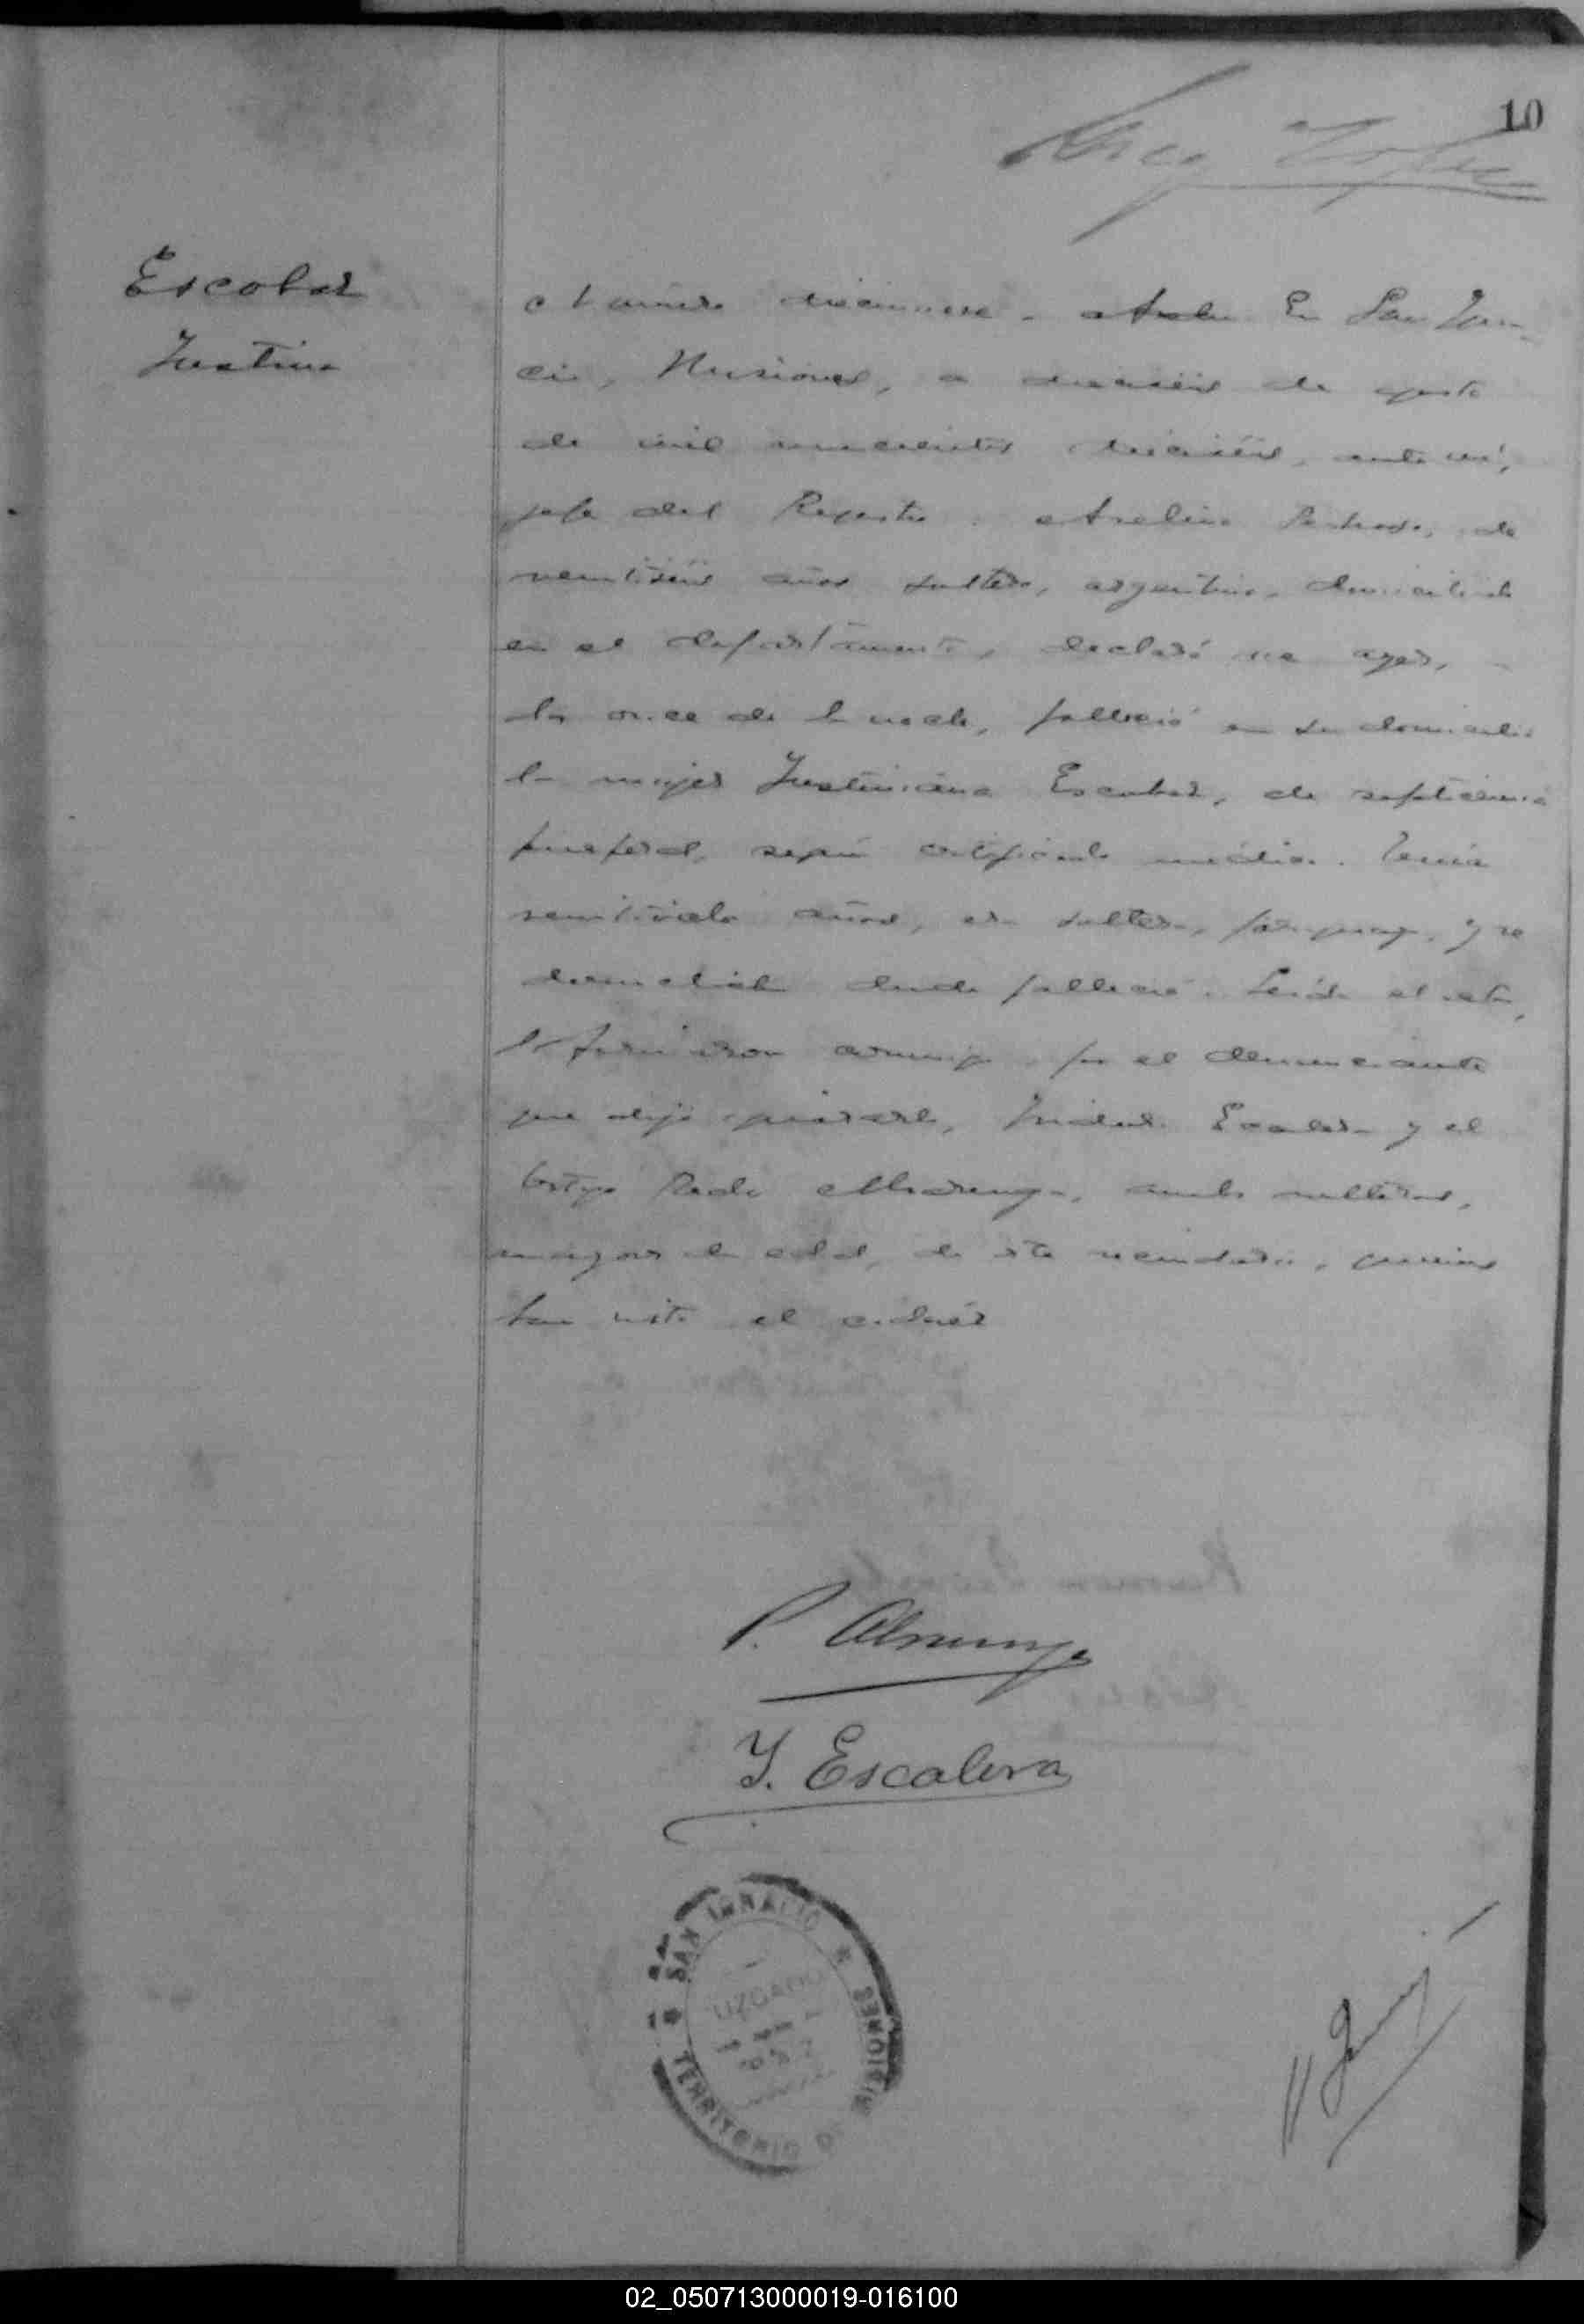 10
Escobar
Justina
Número diecinueve - En San Igna-
cio, Misiones, a dieciseis de agosto
de mil novecientos dieciséis, ante mí,
jefe del Registro, de
veintiséis años soltero, argentino, domiciliado
en el departamento, declaró que ayer, a
las once de la noche, falleció en su domicilio
la mujer Justiniana Escobar, de septicemia
puerperal, según certificado médico. Tenía
veintiocho años, era soltera, paraguaya, y se
domiciliaba donde falleció. Leída el acta,
la firmaron conmigo por el denunciante
que dijo ignorarlo, Escalera y el
testigo Pedro, ambos solteros,
mayores de edad, de este vecindario, quienes
han visto el cadáver
P.
Y. Escalera
SAN IGNACIO
JUZGADO
TERRITORIO DE MISIONES
02_050713000019-016100